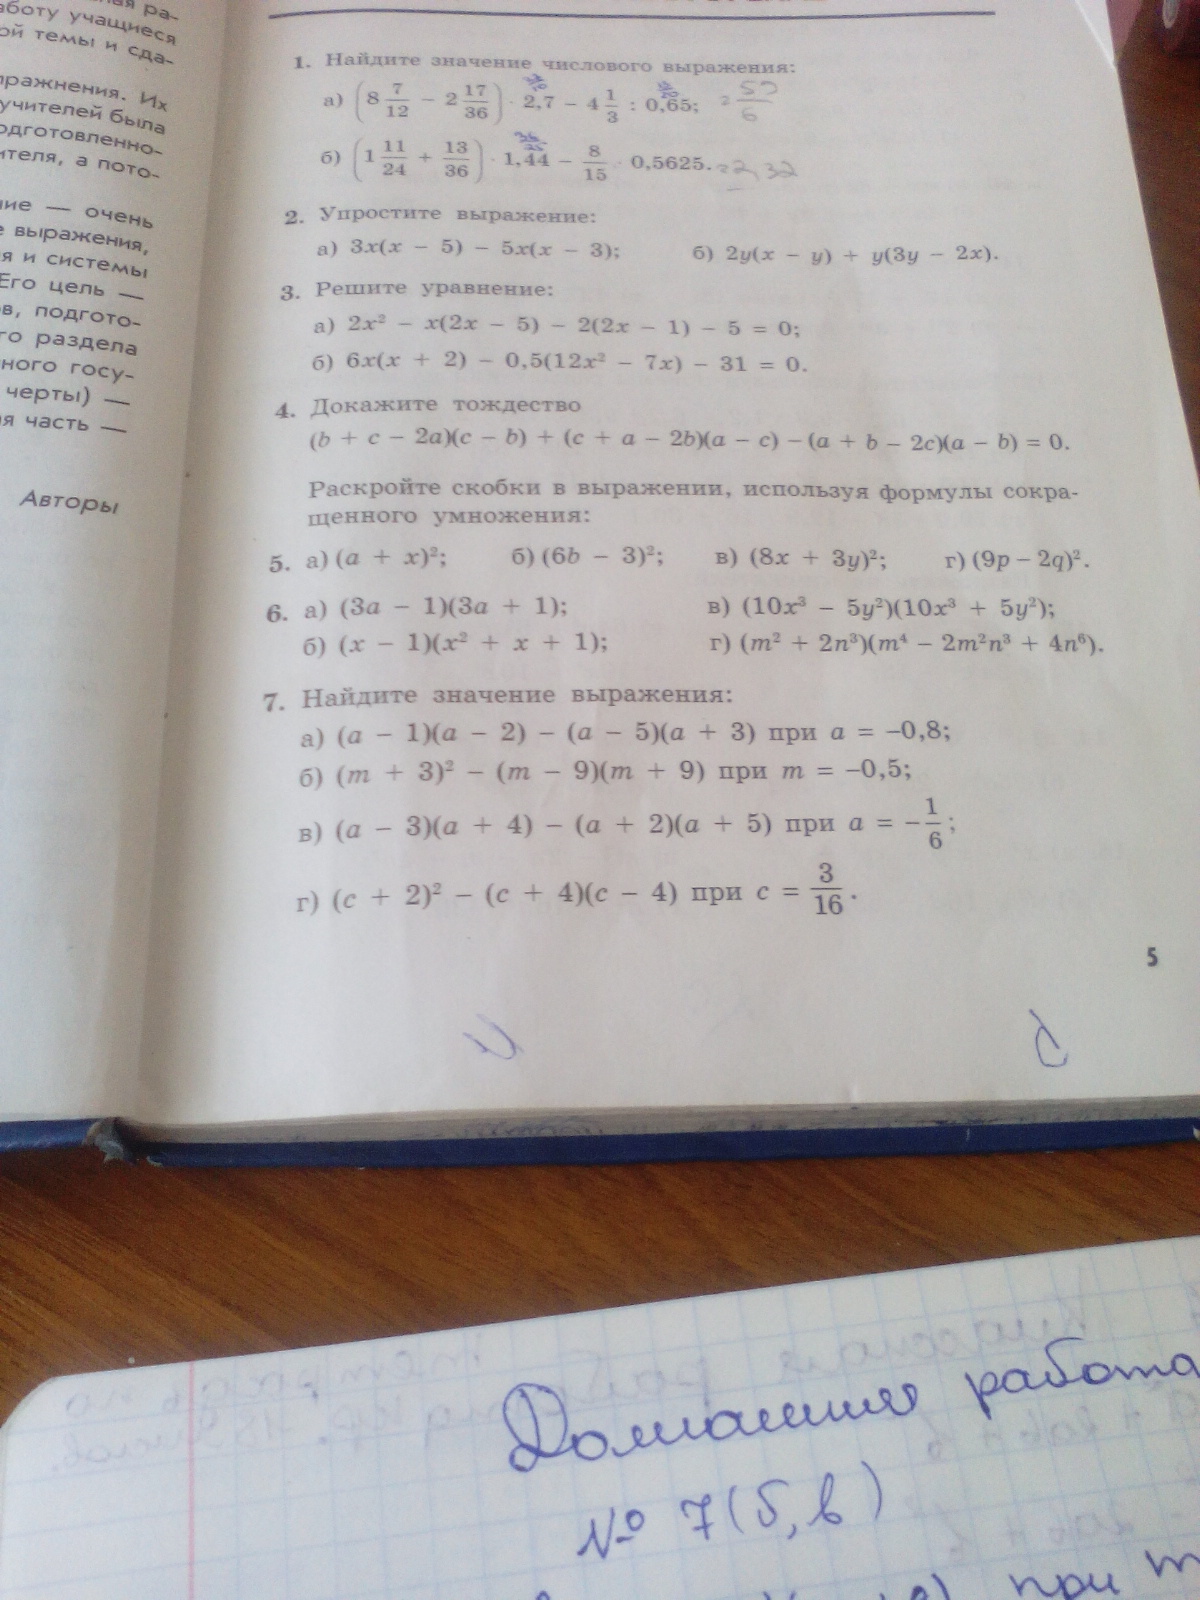 боту учащиеся
ой темы и сда-
пражнения. Их
учителей была
одготовленно-
ителя, а пото-
ние — очень
е выражения,
я и системы
Его цель —
ов, подгото-
го раздела
нного госу-
черты) —
ая часть —
Авторы
1. Найдите значение числового выражения:
а) (8 7/12 − 2 17/36) · 2,7 − 4 1/3 : 0,65;
б) (1 11/24 + 13/36) · 1,44 − 8/15 · 0,5625. = 2,32
2. Упростите выражение:
а) 3x(x − 5) − 5x(x − 3); б) 2y(x − y) + y(3y − 2x).
3. Решите уравнение:
а) 2x² − x(2x − 5) − 2(2x − 1) − 5 = 0;
б) 6x(x + 2) − 0,5(12x² − 7x) − 31 = 0.
4. Докажите тождество
(b + c − 2a)(c − b) + (c + a − 2b)(a − c) − (a + b − 2c)(a − b) = 0.
Раскройте скобки в выражении, используя формулы сокра-
щенного умножения:
5. а) (a + x)²; б) (6b − 3)²; в) (8x + 3y)²; г) (9p − 2q)².
6. а) (3a − 1)(3a + 1); в) (10x³ − 5y²)(10x³ + 5y²);
б) (x − 1)(x² + x + 1); г) (m² + 2n³)(m⁴ − 2m²n³ + 4n⁶).
7. Найдите значение выражения:
а) (a − 1)(a − 2) − (a − 5)(a + 3) при a = −0,8;
б) (m + 3)² − (m − 9)(m + 9) при m = −0,5;
в) (a − 3)(a + 4) − (a + 2)(a + 5) при a = −1/6;
г) (c + 2)² − (c + 4)(c − 4) при c = 3/16.
5
Домашняя работа
№ 7(б, в)
при m